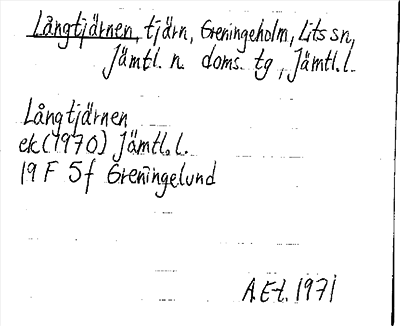 Långtjärnen, tjärn, Greningeholm, Lits sn,
Jämtl. n. doms. tg, Jämtl.l.
Långtjärnen
ek (1970) Jämtl.l.
19 F 5f Greningelund
A.E-t. 1971